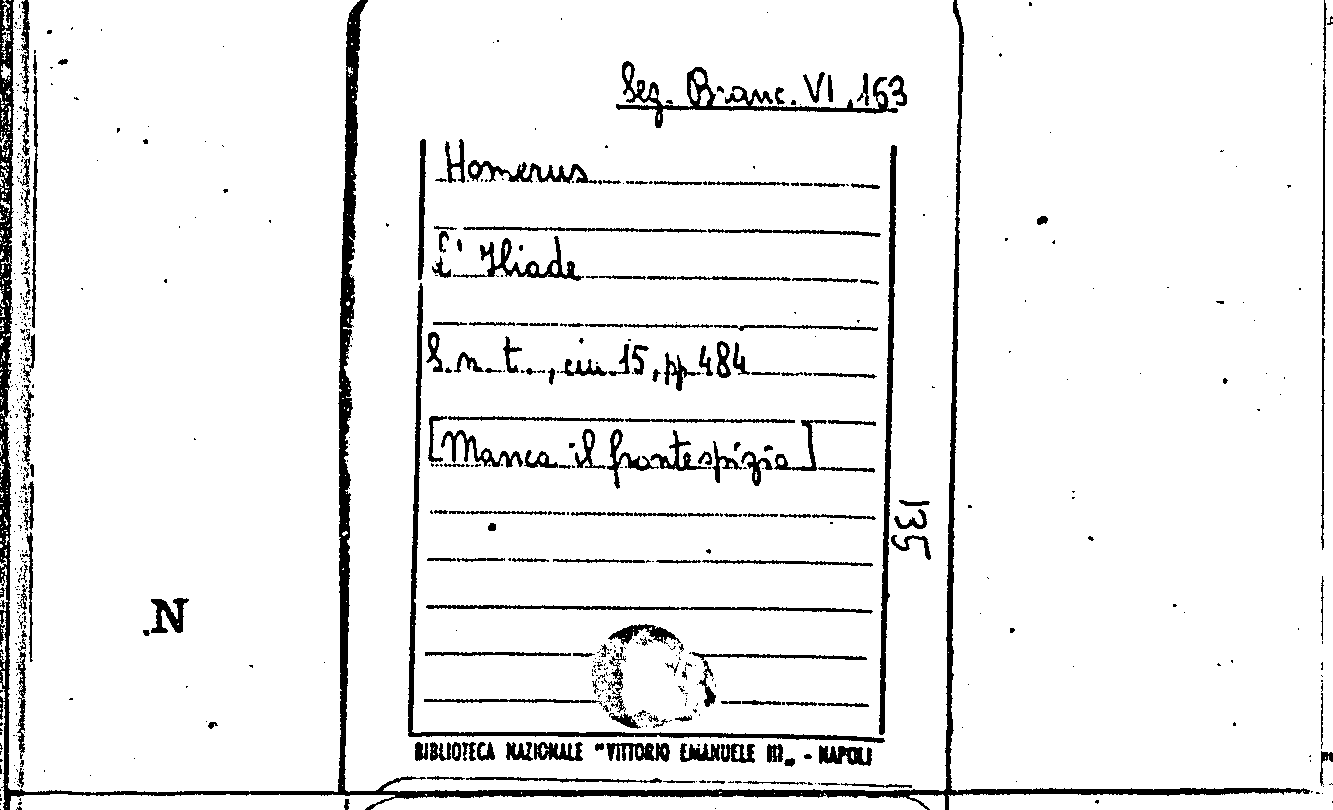 Sez. Branc. VI, 163
Homerus
L' Iliade
S. n. t., cm. 15, pp 484
[Manca il frontespizio]
135
N
BIBLIOTECA NAZIONALE "VITTORIO EMANUELE III„ - NAPOLI